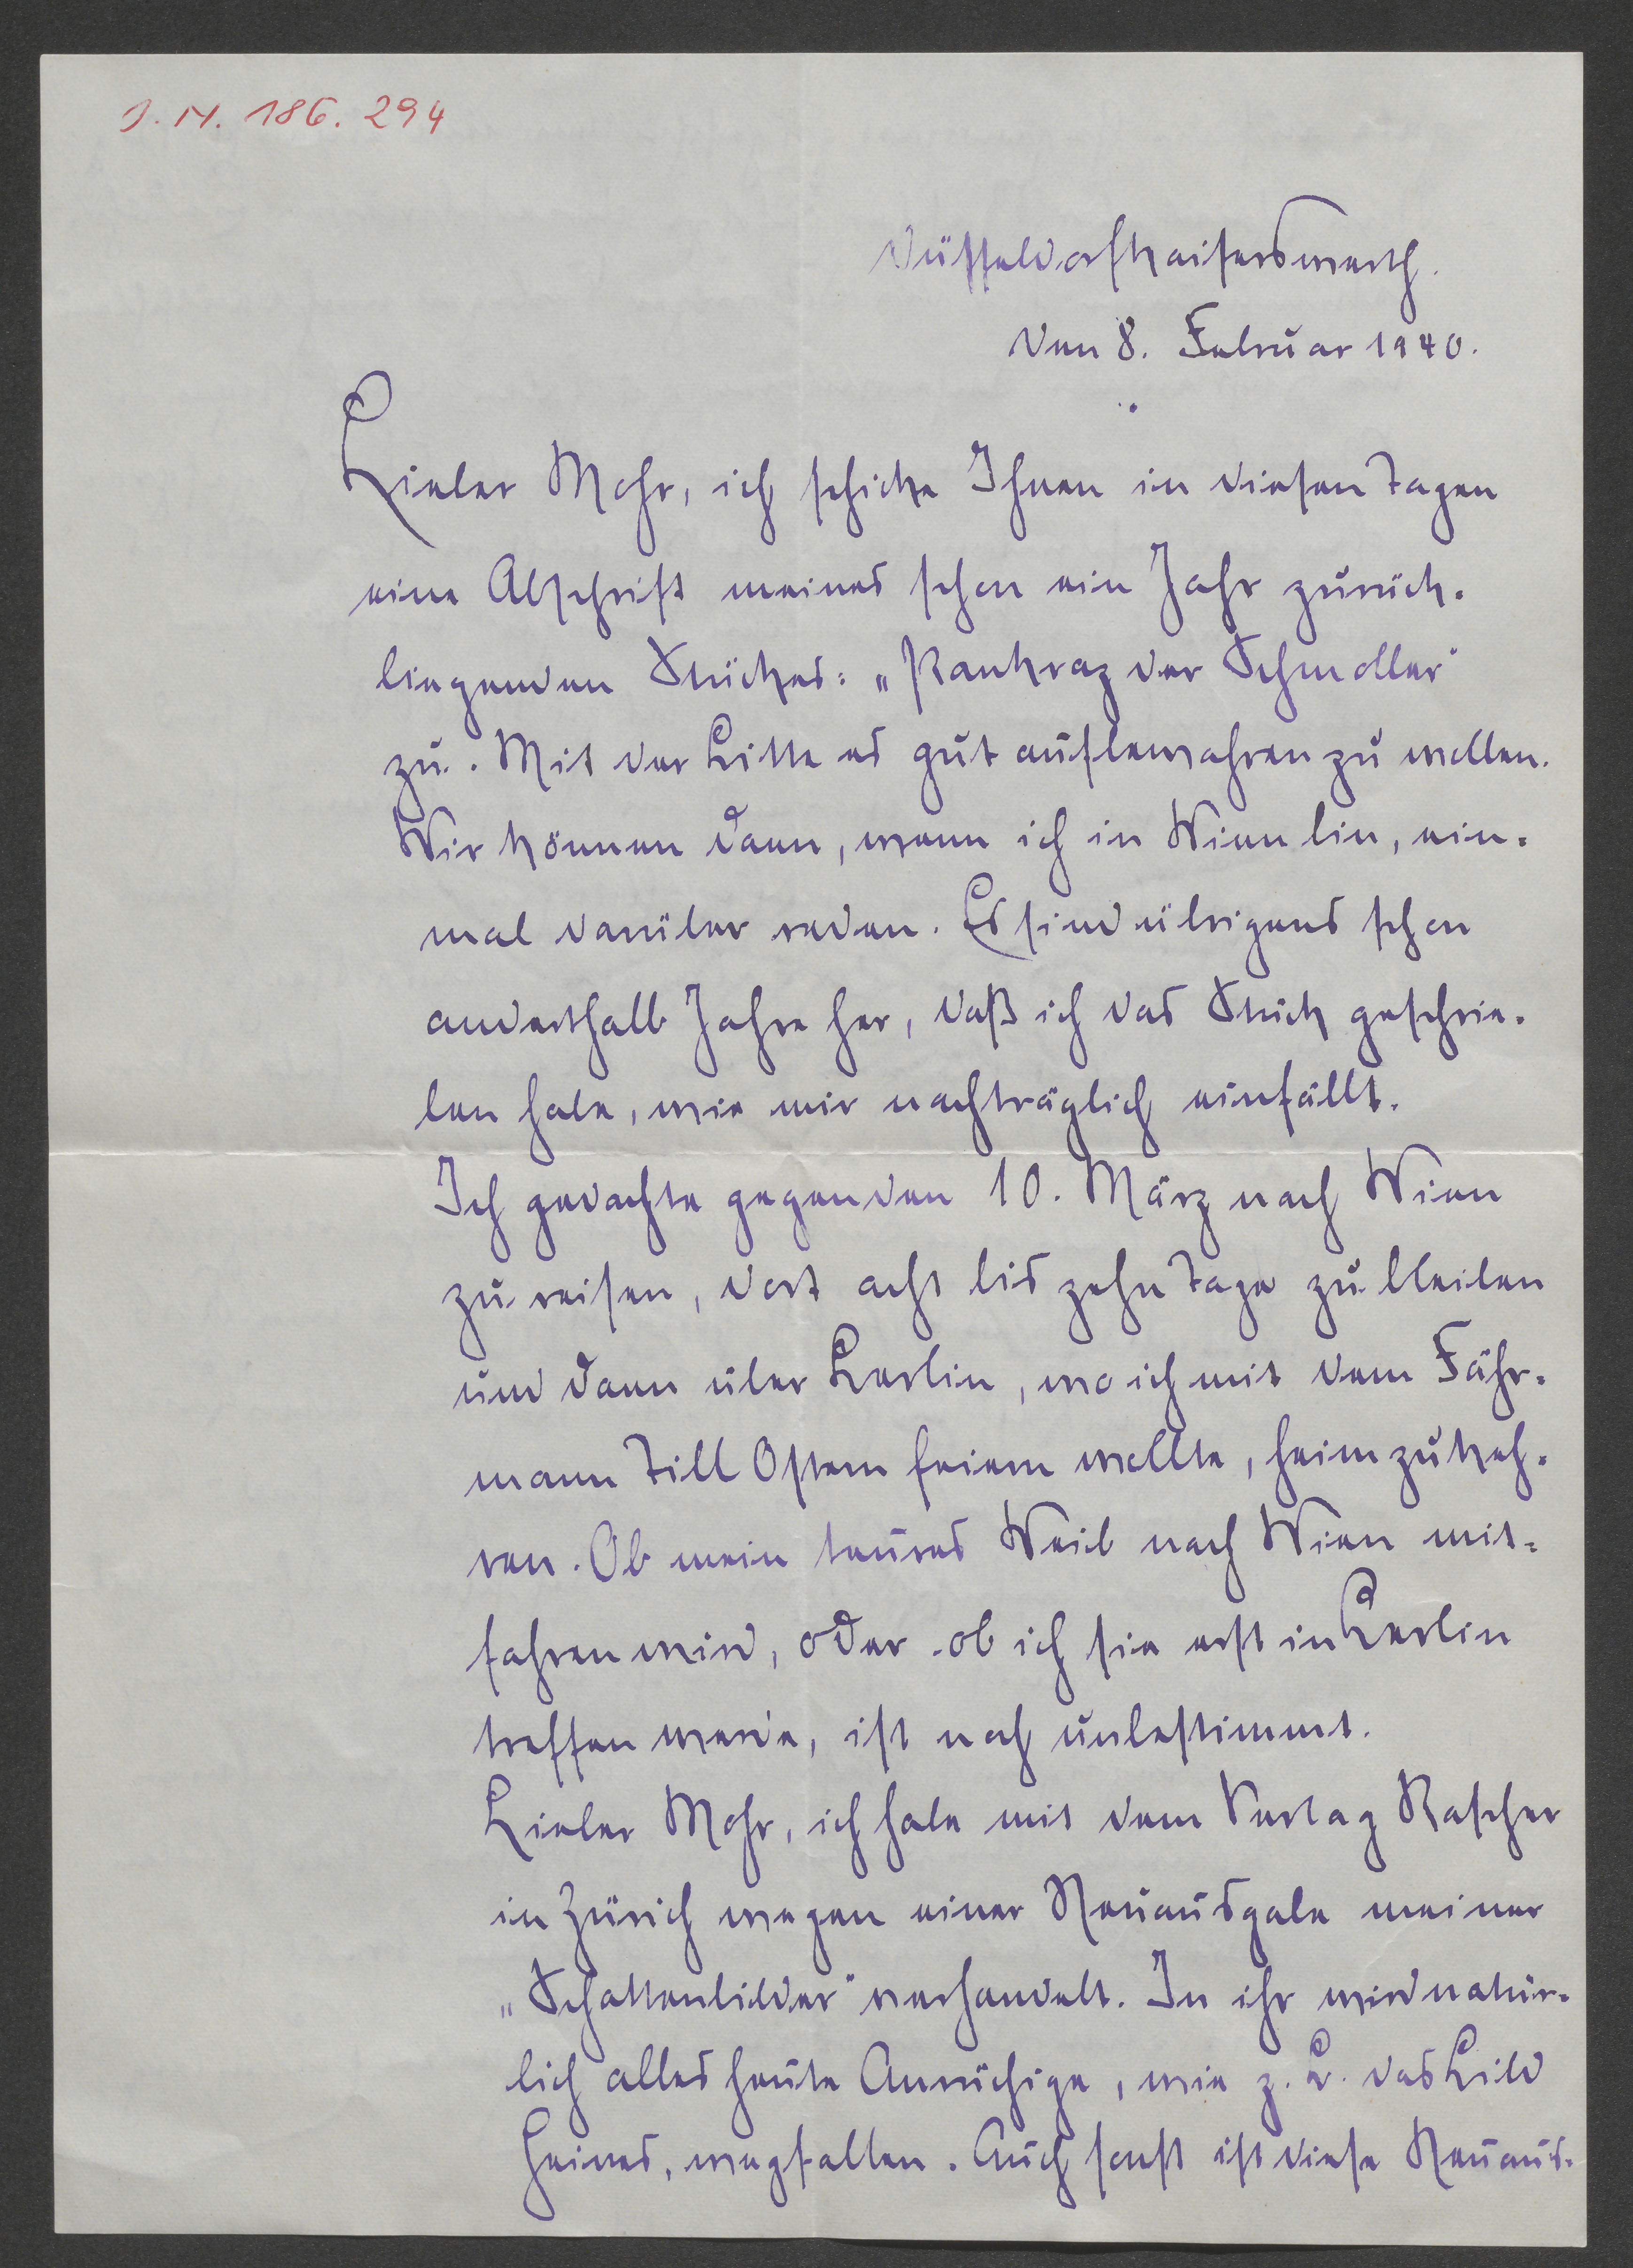 J. N. 186. 294
Düsseldorf Kaiserswerth.
den 8. Februar 1940.
Lieber Mohr, ich schicke Ihnen in diesen Tagen
eine Abschrift meines schon ein Jahr zurück-
liegenden Stückes: „Pankraz der Schmoller"
zu. Mit der Bitte es gut aufbewahren zu wollen.
Wir können dann, wenn ich in Wien bin, ein-
mal darüber reden. Es sind übrigens schon
anderthalb Jahre her, daß ich das Stück geschrie-
ben habe, wie mir nachträglich einfällt.
Ich gedachte gegen den 10. März nach Wien
zu reisen, dort acht bis zehn Tage zu bleiben
und dann über Berlin, wo ich mit dem Fähr-
mann Till Ostern feiern wollte, heimzukeh-
ren. Ob mein teures Weib nach Wien mit-
fahren wird, oder ob ich sie erst in Berlin
treffen werde, ist noch unbestimmt.
Lieber Mohr, ich habe mit dem Verlag Rascher
in Zürich wegen einer Neuausgabe meiner
„Schattenbilder" verhandelt. In ihr wird natür-
lich alles heute Anrüchige, wie z. B. das Bild
Heines, wegfallen. Auch sonst ist diese Neuaus-